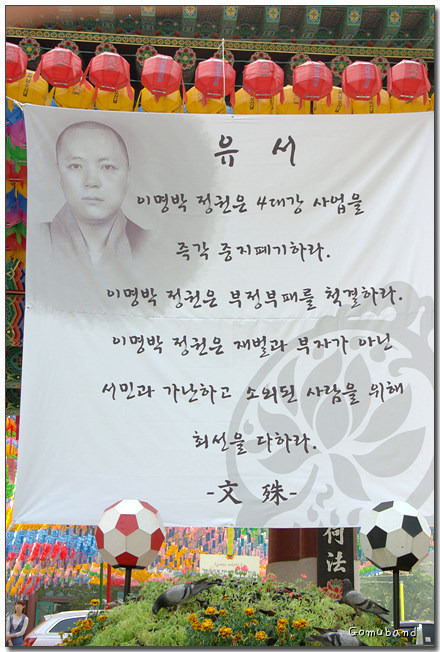 유 서
이명박 정권은 4대강 사업을
즉각 중지폐기하라.
이명박 정권은 부정부패를 척결하라.
이명박 정권은 재벌과 부자가 아닌
서민과 가난하고 소외된 사람을 위해
최선을 다하라.
-文 殊-
荷法
Gomuband